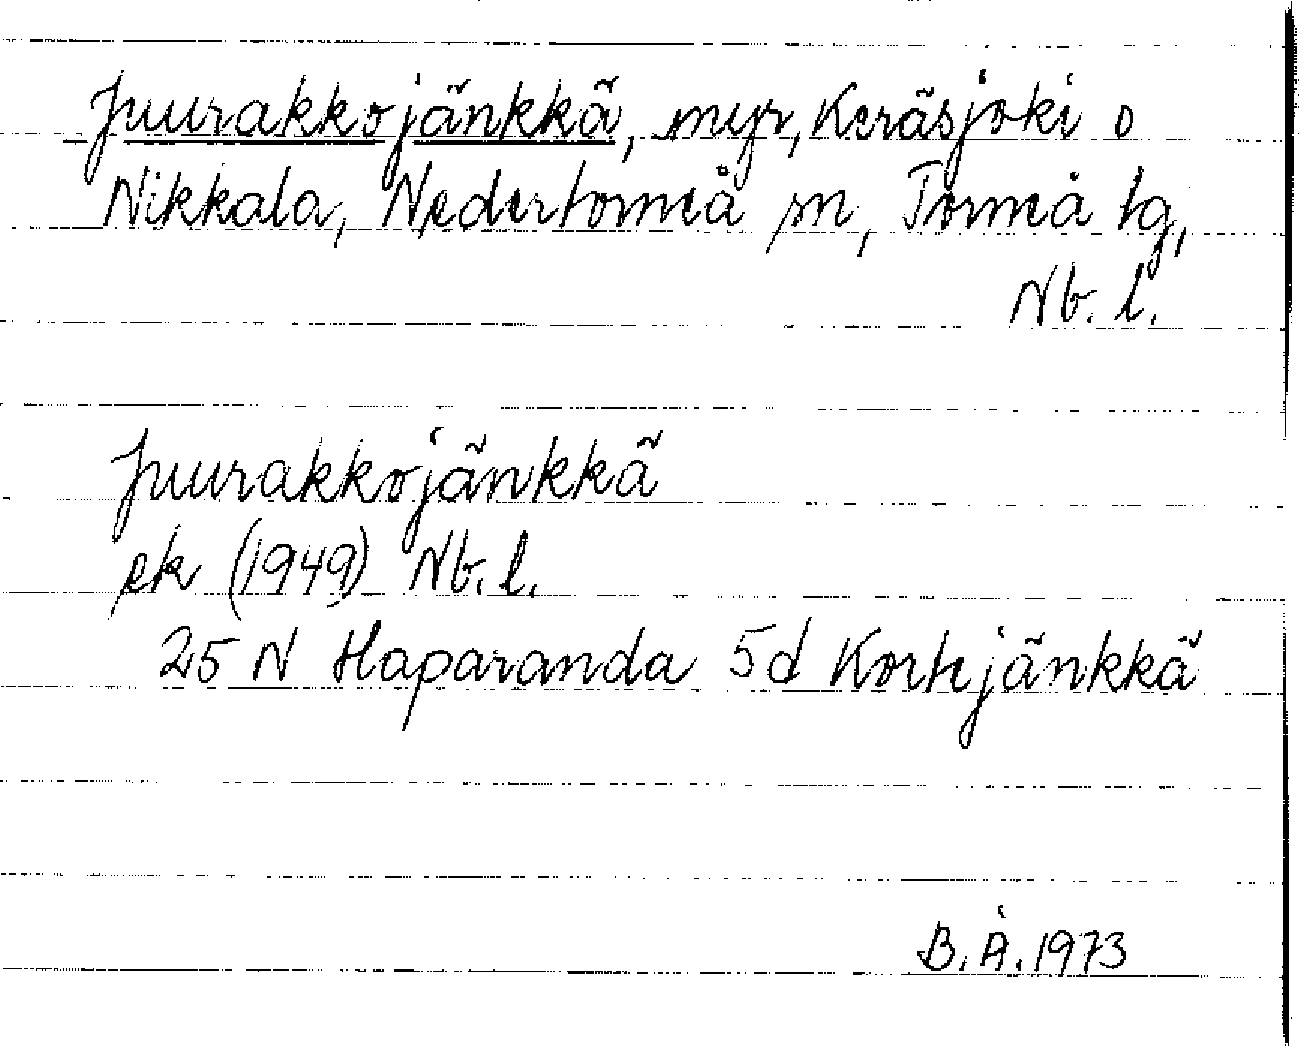 Juurakkojänkkä, myr, Keräsjoki o
Nikkala, Nedertorneå sn, Torneå tg,
Nb. l.
Juurakkojänkkä
ek (1949) Nb. l.
25 N Haparanda 5d Korhjänkkä
B. Å. 1973